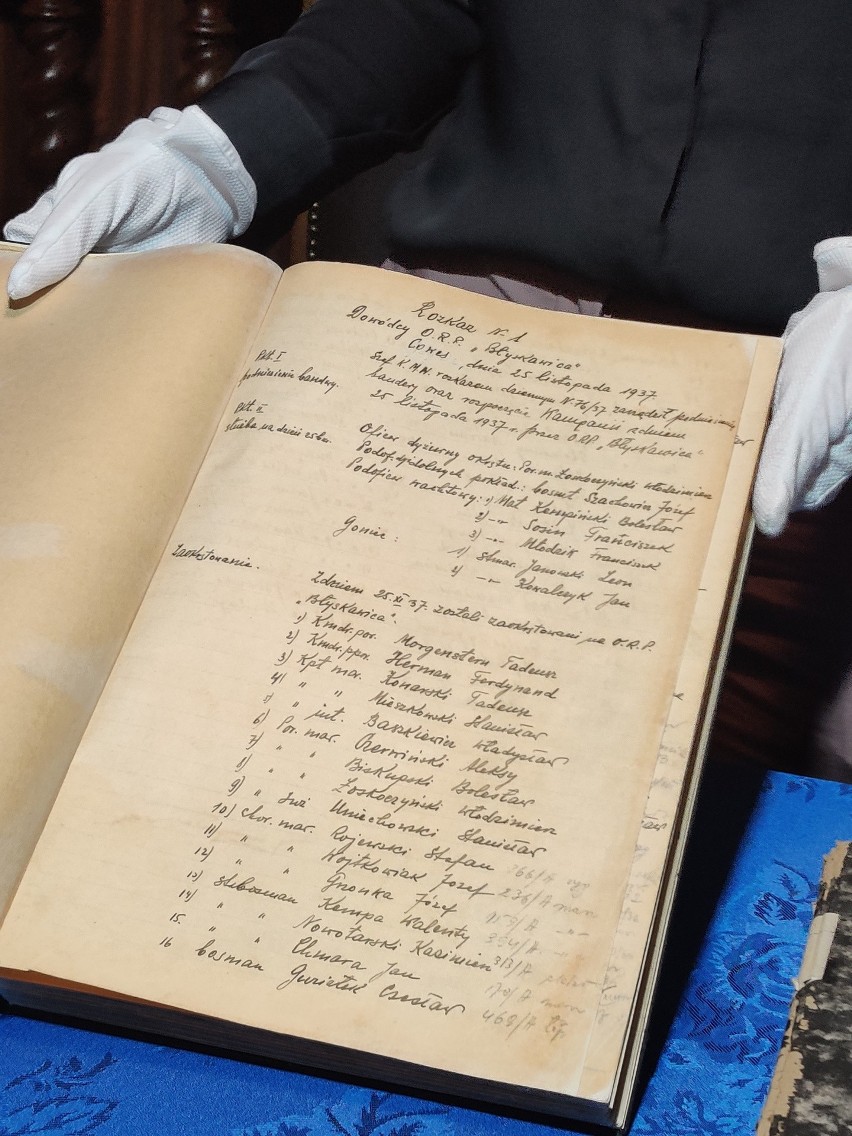 Rozkaz N-1
Dowódcy O.R.P. „Błyskawica"
Cowes, dnia 25 listopada 1937.
Pkt. I
podniesienie bandery.
Szef K.M.W. rozkazem dziennym N 76/37 zarządził podniesienie
bandery oraz rozpoczęcie Kampanii z dniem
25 listopada 1937 r. przez ORP. „Błyskawica"
Pkt. II
służba na dzień
Oficer dyżurny okrętu: Por. m. Łoskoczyński Włodzimierz
Podof. dyż. dolnych pokład.: bosmt Szachowin Józef
Podoficer wachtowy: 1) Mat Kempiński Bolesław
2) -"- Sosin Franciszek
3) -"- Młodzik Franciszek
Goniec: 1) st. mar. Janowski Leon
2) -"- Kowalczyk Jan
Zaokrętowanie.
Z dniem 25 XI 37. zostali zaokrętowani na O.R.P.
„Błyskawica".
1) Kmdr. por. Morgenstern Tadeusz
2) Kmdr. ppor. Herman Ferdynand
3) Kpt mar. Konarski Tadeusz
4) " " Mieszkowski Stanisław
5) " int. Baszkiewicz Władysław
6) Por. mar. Czerwiński Aleksy
7) " " Biskupski Bolesław
8) " " Łoskoczyński Włodzimierz
9) " Inż Uniechowski Stanisław
10) chor. mar. Rojewski Stefan 66/A
11) " " Wojtkowiak Józef 236/A
12) " " Gronka Józef 157/A -"-
13) st. bosman Kempa Walenty
14) " " Nowotarski Kazimierz 313/A
15. " " Chmara Jan
16 bosman Guziełek Czesław 468/A